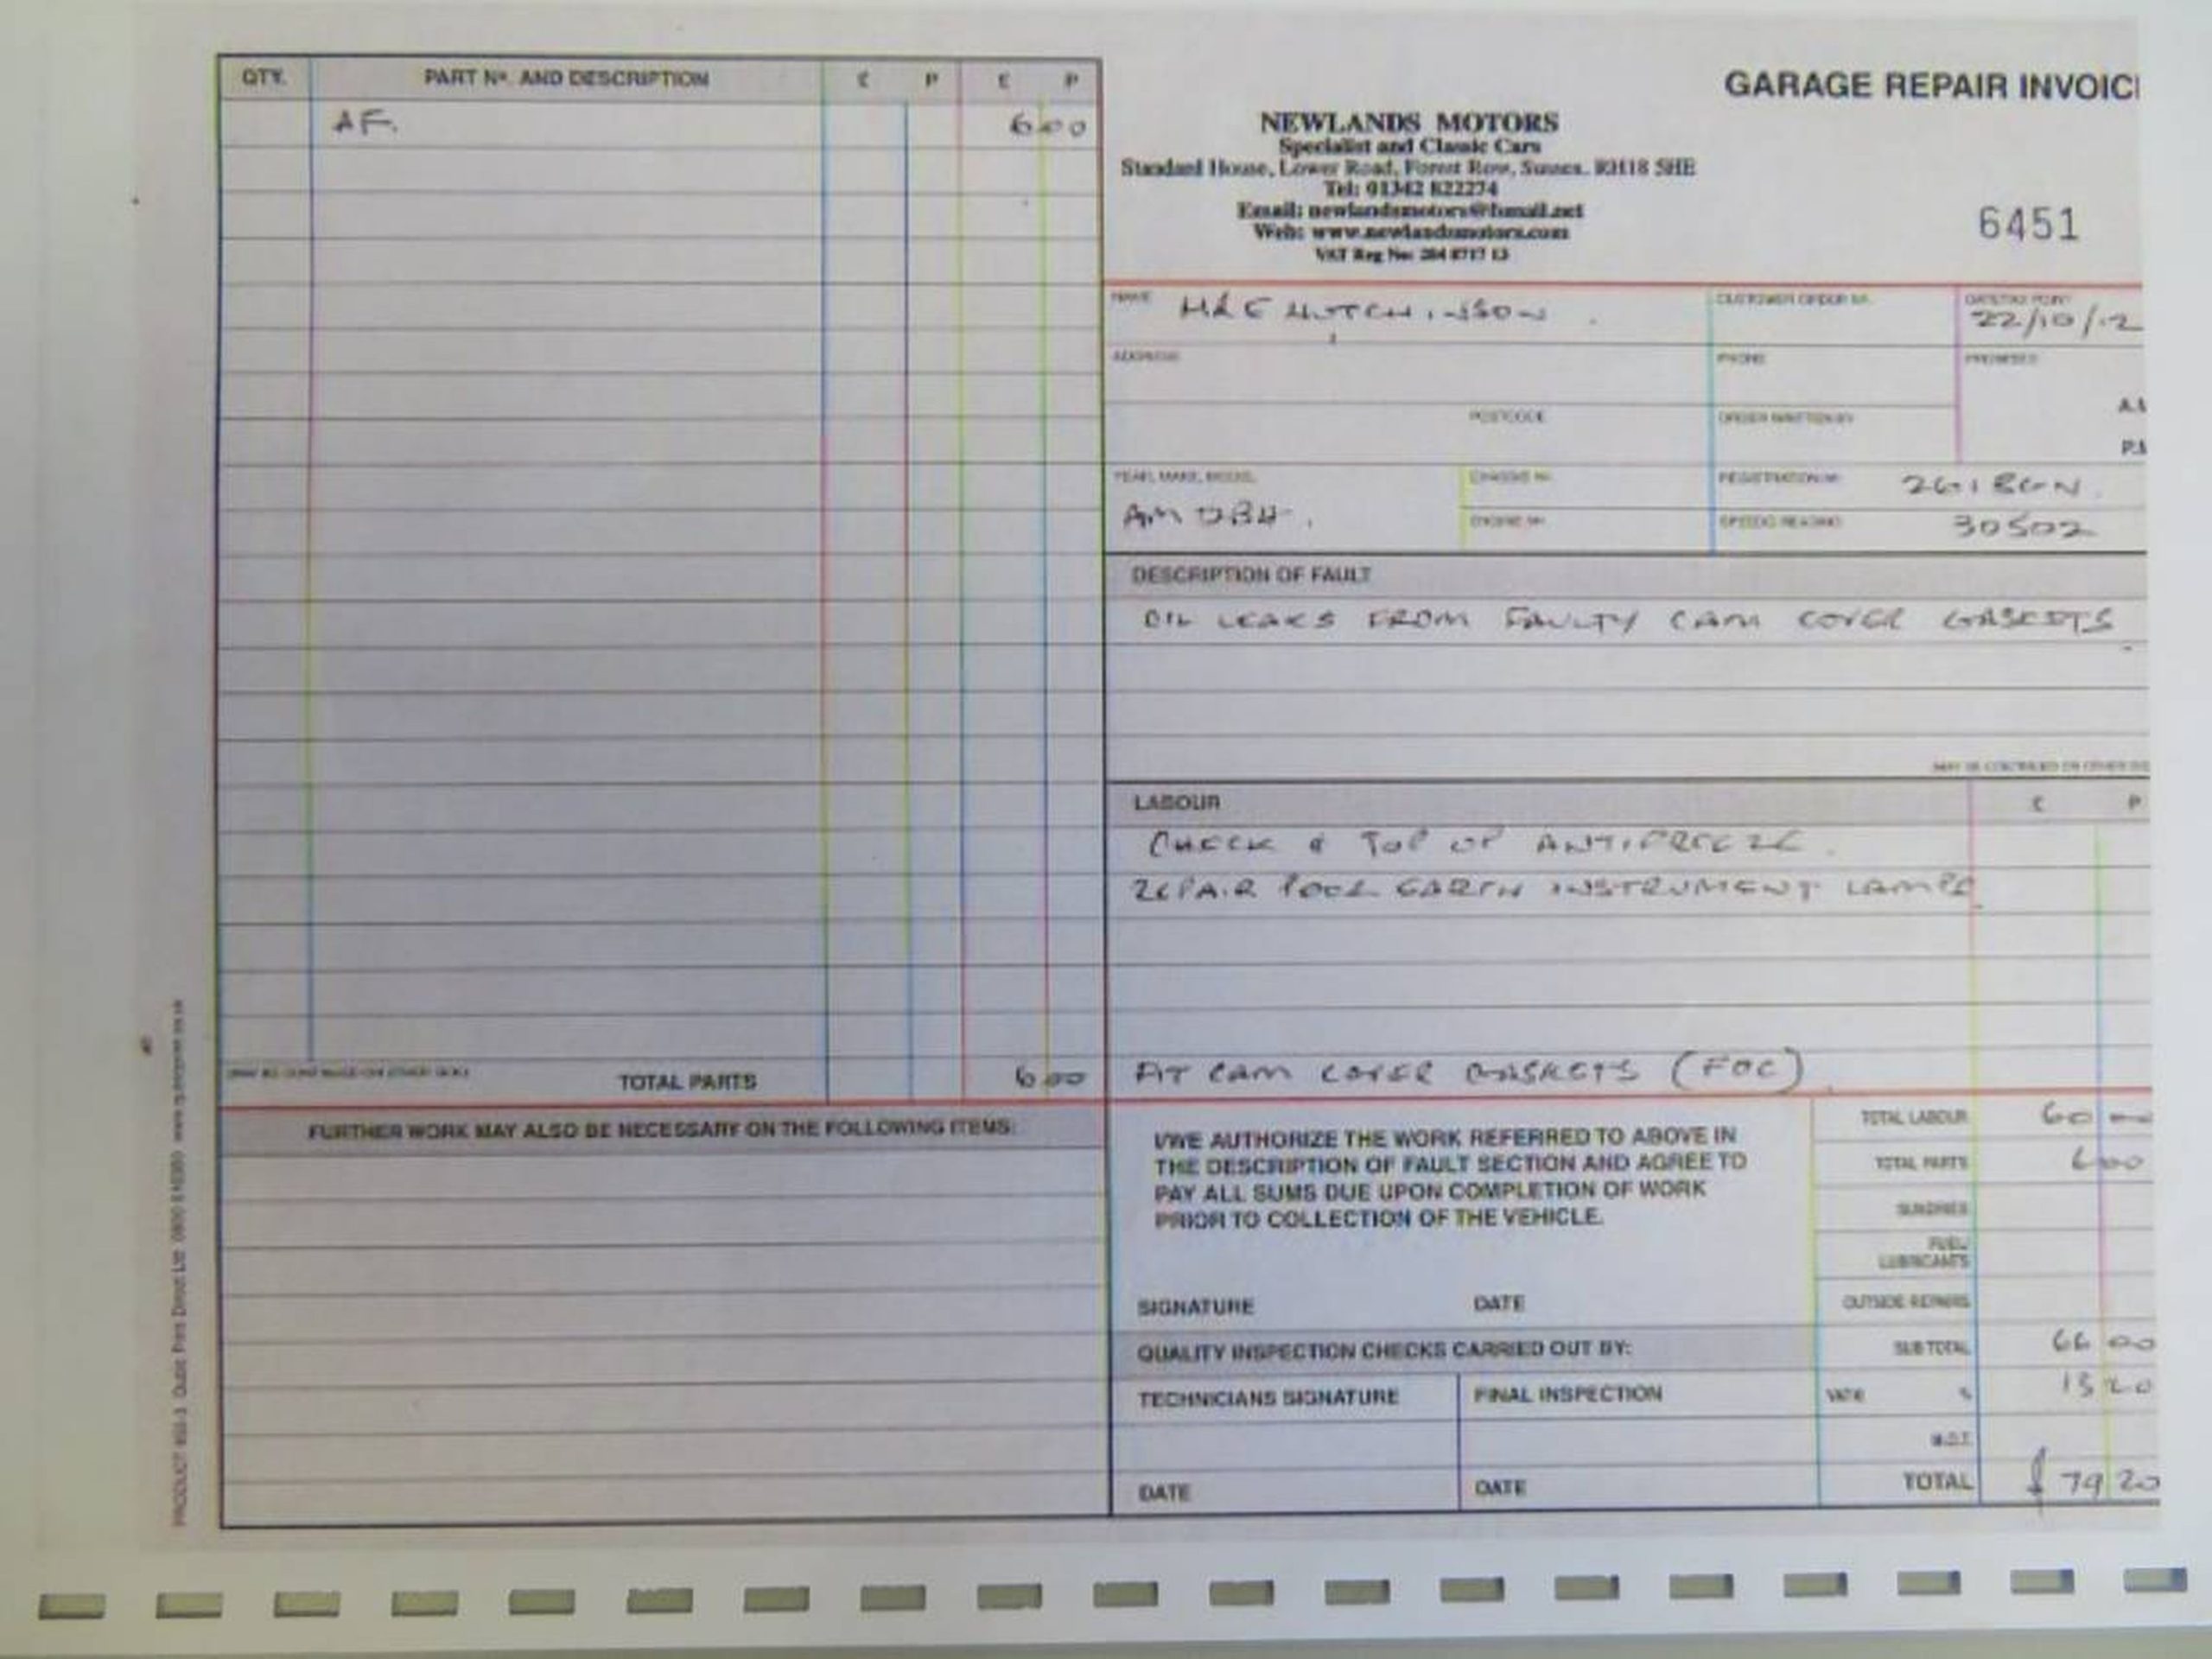 QTY. PART Nº. AND DESCRIPTION £ P £ P
AF. 6 00
TOTAL PARTS 6 00
FURTHER WORK MAY ALSO BE NECESSARY ON THE FOLLOWING ITEMS:
GARAGE REPAIR INVOIC
NEWLANDS MOTORS
Specialist and Classic Cars
Standard House, Lower Road, Forest Row, Sussex. RH18 5HE
Tel: 01342 822274
Email: newlandsmotors@fsmail.net
Web: www.newlandsmotors.com
VAT Reg No:
6451
NAME HUTCHINSON CUSTOMER ORDER Nº. DATE/TAX POINT 22/10/12
ADDRESS PHONE PROMISED
A.M
POSTCODE ORDER WRITTEN BY
P.M
YEAR, MAKE, MODEL CHASSIS Nº. REGISTRATION Nº 261 BGN.
AM DB4. ENGINE Nº SPEEDO READING 30502
DESCRIPTION OF FAULT
OIL LEAKS FROM FAULTY CAM COVER GASKETS
LABOUR £ P
CHECK & TOP UP ANTIFREEZE.
REPAIR POOR EARTH INSTRUMENT LAMPS
FIT CAM COVER GASKETS (FOC)
I/WE AUTHORIZE THE WORK REFERRED TO ABOVE IN
THE DESCRIPTION OF FAULT SECTION AND AGREE TO
PAY ALL SUMS DUE UPON COMPLETION OF WORK
PRIOR TO COLLECTION OF THE VEHICLE.
SIGNATURE DATE
QUALITY INSPECTION CHECKS CARRIED OUT BY:
TECHNICIANS SIGNATURE FINAL INSPECTION
DATE DATE
TOTAL LABOUR 60 00
TOTAL PARTS 6 00
SUNDRIES
FUEL/
LUBRICANTS
OUTSIDE REPAIRS
SUB TOTAL 66 00
VAT @ % 13 20
M.O.T.
TOTAL £ 79 20